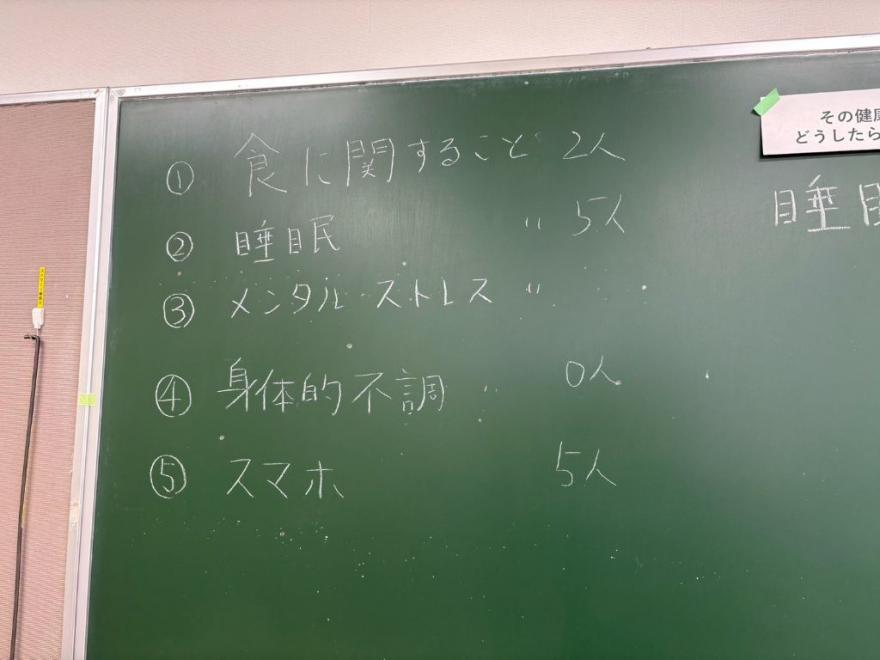 ① 食に関すること 2人
② 睡眠 〃 5人
③ メンタル ストレス 〃
④ 身体的不調 〃 0人
⑤ スマホ 5人
その健康
どうしたら
睡眠